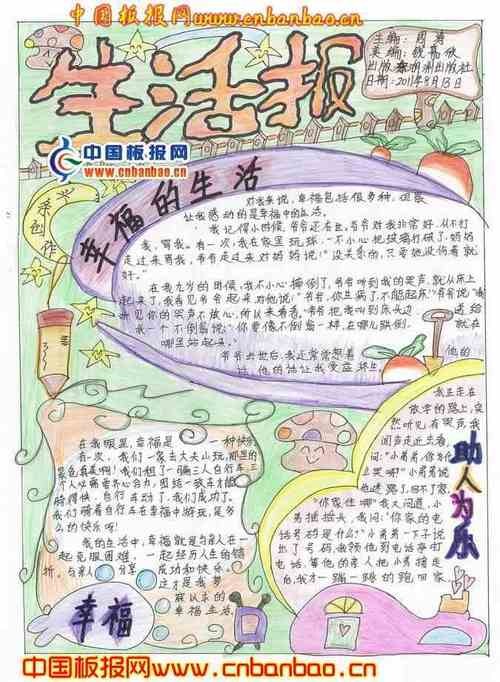 中国板报网www.cnbanbao.cn
生活报
主编：周
美编：钱嘉欣
出版社
日期：2011年8月13日
中国板报网
www.cnbanbao.cn
亲
创作
幸福的生活
对我来说，幸福包括很多种，但最
让我感动的是幸福中的生活。
我记得小时候，爷爷还在世。爷爷对我非常好，从不打
我、骂我。有一次，我在家里玩球，不小心把玻璃打破了，妈妈
走过来骂我，爷爷走过来对妈妈说：“没关系的，只要他没伤着就
好。”
在我九岁的时候，我不小心摔倒了，爷爷听到我的哭声，就从床上
起来了，我看见爷爷起来对他说：“爷爷，你生病了，不能起床。”爷爷说：“我
听见你的哭声不放心，所以来看看。”爷爷把我叫到床头边，送给
我一个不倒翁说：“你要像不倒翁一样，在哪儿跌倒，就在
哪里站起来。”
爷爷去世后，我还常常想着他的
话，他的话让我受益终生
在我眼里，幸福是一种快乐。
有一次，我们一家去大夫山玩，那里的
景色真美啊！我们租了一辆三人自行车，三
个人必需齐心合力，团结一致车才能
骑得快，自行车动了，我们成功了。
我们骑着自行车在幸福中游玩，是多
么的快乐呀！
我的生活中，幸福就是与亲人在一
起克服困难，一起经历人生的错
折，与亲人分享成功和快乐。
这才是我梦
寐以求的
幸福生活
幸福
助人为乐
我正走在
放学的路上，突
然听见有哭声，我
闻声走近去看，
问：“小弟弟，你为什
么哭啊？”小弟弟说
他迷路了，回不了家，
“你家住哪？”我又问道，小
弟摇摇头，我问：“你家的电
话号码是什么？”小弟弟一下子说
出了号码，我领他到电话亭打
电话，等他的亲人把小弟接走
后，我才一蹦一跳的跑回家
中国板报网www.cnbanbao.cn